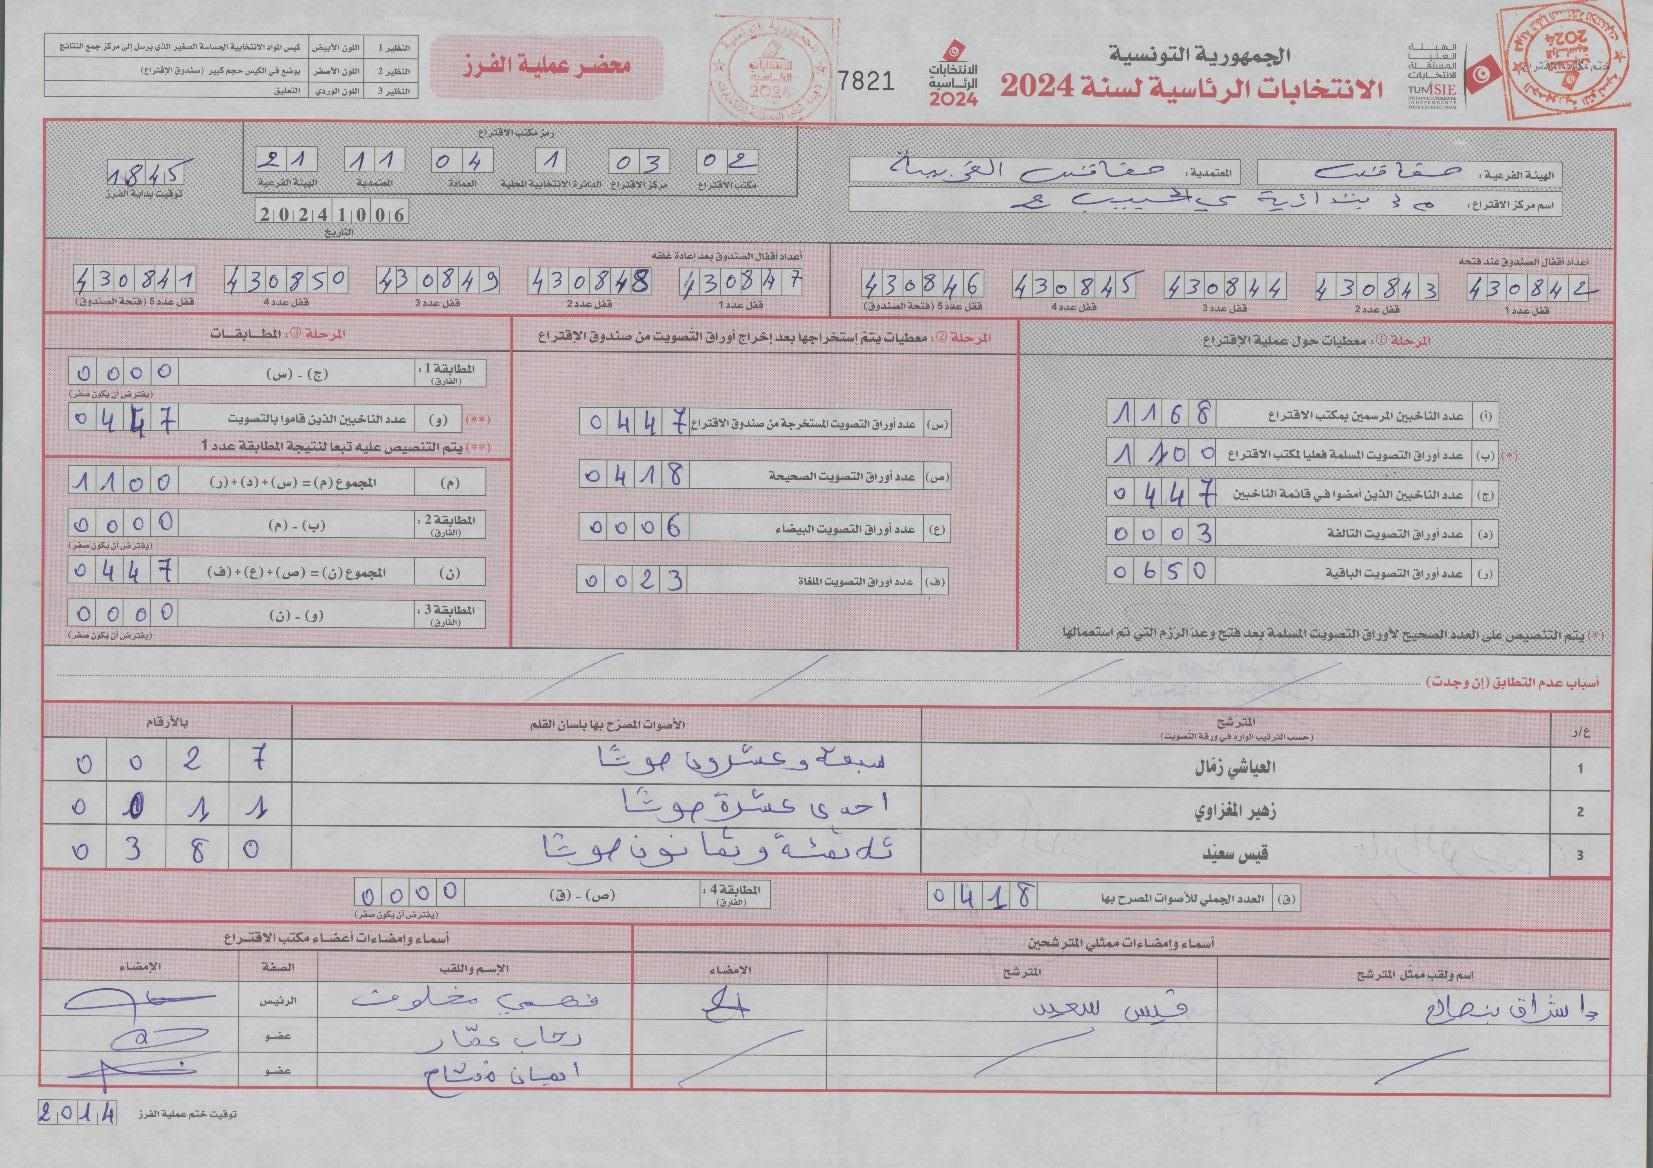 الجمهورية التونسية
الانتخابات الرئاسية لسنة 2024
الهيئة
العليا
المستقلة
للانتخابات
TUNISIE
الانتخابات
الرئاسية
2024
7821
محضر عملية الفرز
النظير 1 اللون الأبيض كيس المواد الانتخابية الحساسة الصغير الذي يرسل إلى مركز جمع النتائج
النظير 2 اللون الأصفر يوضع في الكيس حجم كبير (صندوق الإقتراع)
النظير 3 اللون الوردي التعليق
الهيئة الفرعية: صفاقس المعتمدية: صفاقس الغربية
اسم مركز الإقتراع:
رمز مكتب الاقتراع
02 03 1 04 11 21
مكتب الاقتراع مركز الاقتراع الدائرة الانتخابية المحلية العمادة المعتمدية الهيئة الفرعية
20241006
التاريخ
1845
توقيت بداية الفرز
أعداد أقفال الصندوق عند فتحه
430842 430843 430844 430845 430846
قفل عدد 1 قفل عدد 2 قفل عدد 3 قفل عدد 4 قفل عدد 5 (فتحة الصندوق)
أعداد أقفال الصندوق بعد إعادة غلقه
430847 430848 430849 430850 430841
قفل عدد 1 قفل عدد 2 قفل عدد 3 قفل عدد 4 قفل عدد 5 (فتحة الصندوق)
المرحلة ①: معطيات حول عملية الإقتراع
(أ) عدد الناخبين المرسمين بمكتب الاقتراع 1168
(*) (ب) عدد أوراق التصويت المسلمة فعليا لمكتب الاقتراع 1100
(ج) عدد الناخبين الذين أمضوا في قائمة الناخبين 0447
(د) عدد أوراق التصويت التالفة 0003
(ر) عدد أوراق التصويت الباقية 0650
(*) يتم التنصيص على العدد الصحيح لأوراق التصويت المسلمة بعد فتح وعد الرزم التي تم استعمالها
المرحلة ②: معطيات يتم إستخراجها بعد إخراج أوراق التصويت من صندوق الإقتراع
(س) عدد أوراق التصويت المستخرجة من صندوق الاقتراع 0447
(ص) عدد أوراق التصويت الصحيحة 0418
(ع) عدد أوراق التصويت البيضاء 0006
(ف) عدد أوراق التصويت الملغاة 0023
المرحلة ③: المطابقات
المطابقة 1: (الفارق) (ج) - (س) 0000
(يفترض أن يكون صفر)
(**) (و) عدد الناخبين الذين قاموا بالتصويت 0447
(**) يتم التنصيص عليه تبعا لنتيجة المطابقة عدد 1
(م) المجموع (م) = (س)+(د)+(ر) 1100
المطابقة 2: (الفارق) (ب) - (م) 0000
(يفترض أن يكون صفر)
(ن) المجموع (ن) = (ص)+(ع)+(ف) 0447
المطابقة 3: (الفارق) (و) - (ن) 0000
(يفترض أن يكون صفر)
أسباب عدم التطابق (إن وجدت)
ع/ر المترشح (حسب الترتيب الوارد في ورقة التصويت) الأصوات المصرّح بها بلسان القلم بالأرقام
1 العياشي زمّال سبعة وعشرون صوتا 0027
2 زهير المغزاوي احدى عشرة صوتا 0011
3 قيس سعيّد ثلاثمئة وثمانون صوتا 0380
(ق) العدد الجملي للأصوات المصرح بها 0418
المطابقة 4: (الفارق) (ص) - (ق) 0000
(يفترض أن يكون صفر)
أسماء وإمضاءات ممثلي المترشحين
اسم ولقب ممثل المترشح المترشح الإمضاء
قيس سعيد
أسماء وإمضاءات أعضاء مكتب الاقتراع
الإسم واللقب الصفة الإمضاء
فهمي مخلوف الرئيس
رحاب عمّار عضو
عضو
توقيت ختم عملية الفرز 2014